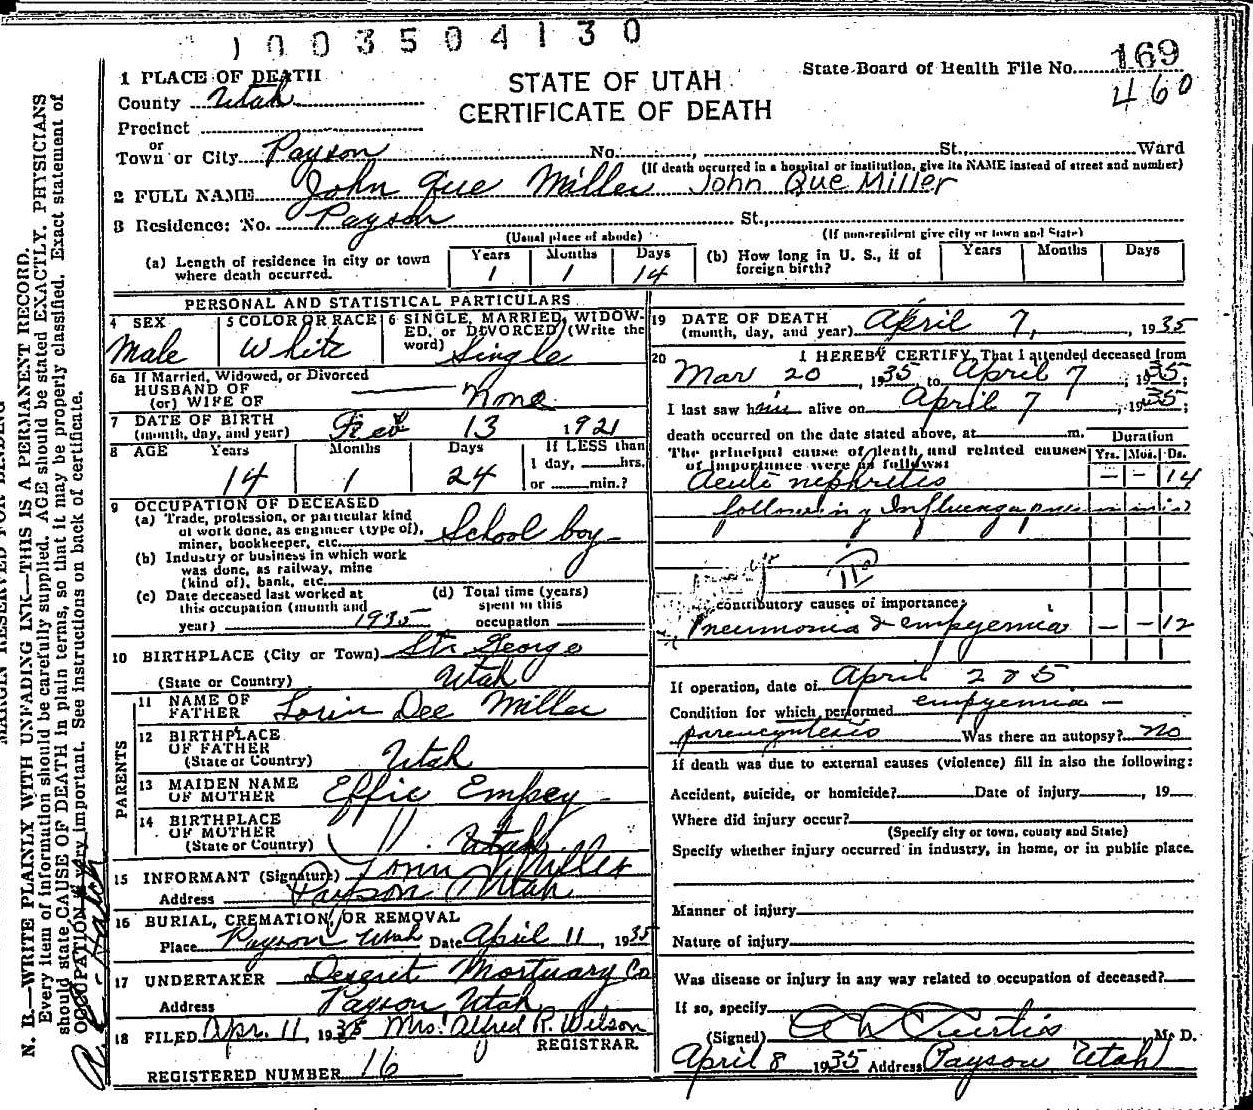 1003504130
169
State Board of Health File No.
460
STATE OF UTAH
CERTIFICATE OF DEATH
1 PLACE OF DEATH
County Utah
Precinct
or
Town or City Payson No. , St. Ward
(If death occurred in a hospital or institution, give its NAME instead of street and number)
2 FULL NAME John Que Miller John Que Miller
3 Residence: No. Payson St.,
(Usual place of abode) (If non-resident give city or town and State)
(a) Length of residence in city or town where death occurred. Years 1 Months 1 Days 14
(b) How long in U. S., if of foreign birth? Years Months Days
PERSONAL AND STATISTICAL PARTICULARS
4 SEX Male
5 COLOR OR RACE White
6 SINGLE, MARRIED, WIDOWED, or DIVORCED (Write the word) Single
6a If Married, Widowed, or Divorced
HUSBAND OF
(or) WIFE OF None
7 DATE OF BIRTH
(month, day, and year) Feb 13 1921
8 AGE Years 14 Months 1 Days 24
If LESS than
1 day, hrs.
or min.?
9 OCCUPATION OF DECEASED
(a) Trade, profession, or particular kind
of work done, as engineer (type of),
miner, bookkeeper, etc. School boy
(b) Industry or business in which work
was done, as railway, mine
(kind of), bank, etc.
(c) Date deceased last worked at
this occupation (month and
year) 1935
(d) Total time (years)
spent in this
occupation
10 BIRTHPLACE (City or Town) St. George
(State or Country) Utah
PARENTS
11 NAME OF
FATHER Lorin Dee Miller
12 BIRTHPLACE
OF FATHER
(State or Country) Utah
13 MAIDEN NAME
OF MOTHER Effie Empey
14 BIRTHPLACE
OF MOTHER
(State or Country) " Utah
15 INFORMANT (Signature) Lorin Miller
Address Payson Utah
16 BURIAL, CREMATION, OR REMOVAL
Place Payson Utah Date April 11, 1935
17 UNDERTAKER Deseret Mortuary Co
Address Payson Utah
18 FILED Apr. 11, 1935 Mrs. Alfred R. Wilson
REGISTRAR.
REGISTERED NUMBER 16
19 DATE OF DEATH
(month, day, and year) April 7, , 1935
20 I HEREBY CERTIFY, That I attended deceased from
Mar 20 , 1935 to April 7 , 1935;
I last saw him alive on April 7 , 1935;
death occurred on the date stated above, at m.
Duration
The principal cause of death and related causes
of importance were as follows: Yrs. Mos. Ds.
Acute nephritis – – 14
following Influenza
contributory causes of importance:
Pneumonia & empyemia – – 12
If operation, date of April 2 & 5
Condition for which performed empyemia –
Was there an autopsy? no
If death was due to external causes (violence) fill in also the following:
Accident, suicide, or homicide? Date of injury , 19
Where did injury occur?
(Specify city or town, county and State)
Specify whether injury occurred in industry, in home, or in public place.
Manner of injury
Nature of injury
Was disease or injury in any way related to occupation of deceased?
If so, specify
(Signed) A L Curtis M. D.
April 8 1935 Address Payson Utah
MARGIN RESERVED FOR BINDING
N. B.—WRITE PLAINLY WITH UNFADING INK—THIS IS A PERMANENT RECORD.
Every item of information should be carefully supplied. AGE should be stated EXACTLY. PHYSICIANS
should state CAUSE OF DEATH in plain terms, so that it may be properly classified. Exact statement of
OCCUPATION is very important. See instructions on back of certificate.